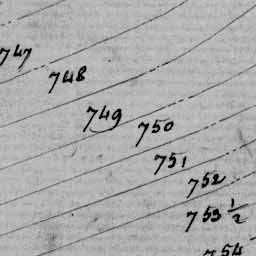 747
748
749
750
751
752
753 1/2
754